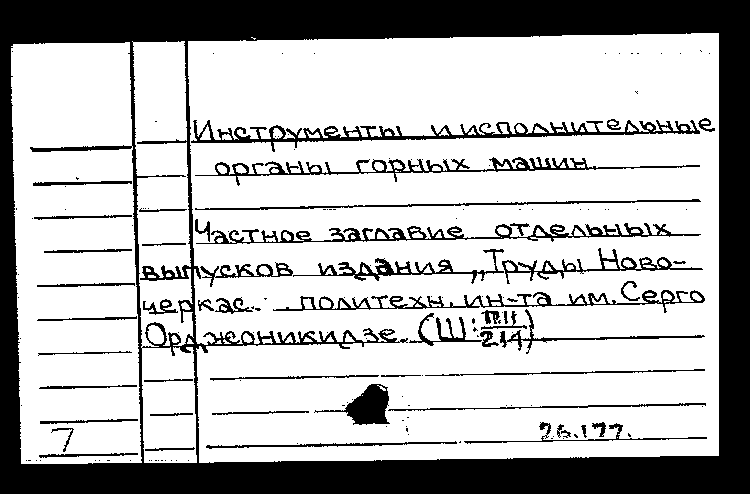 Инструменты и исполнительные
органы горных машин.
Частное заглавие отдельных
выпусков издания „Труды Ново-
черкас. политехн. ин-та им. Серго
Орджоникидзе. (Ш: 214)
7 26.177.